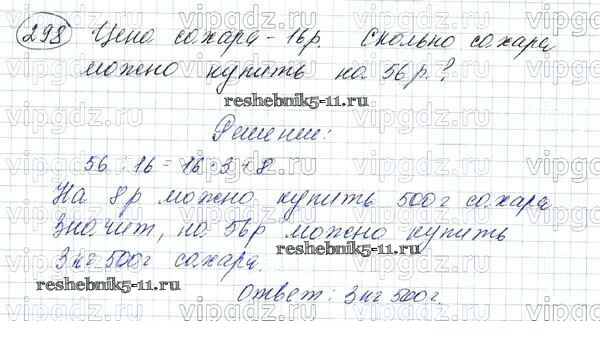 298 Цена сахара - 16р. Сколько сахара
можно купить на 56р.?
reshebnik5-11.ru
Решение:
56 : 16 = 16·3+8
На 8р можно купить 500г сахара
Значит, на 56р можно купить
reshebnik5-11.ru
3кг 500г сахара.
reshebnik5-11.ru
Ответ: 3кг 500г.
vipgdz.ru vipgdz.ru vipgdz.ru